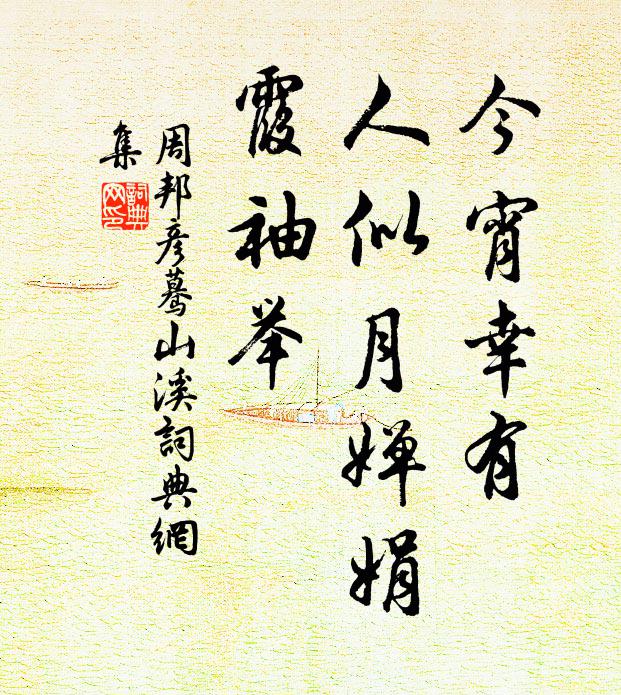 今宵幸有
人似月婵娟
霞袖举
周邦彦蓦山溪詞典網
集
詞典
网印